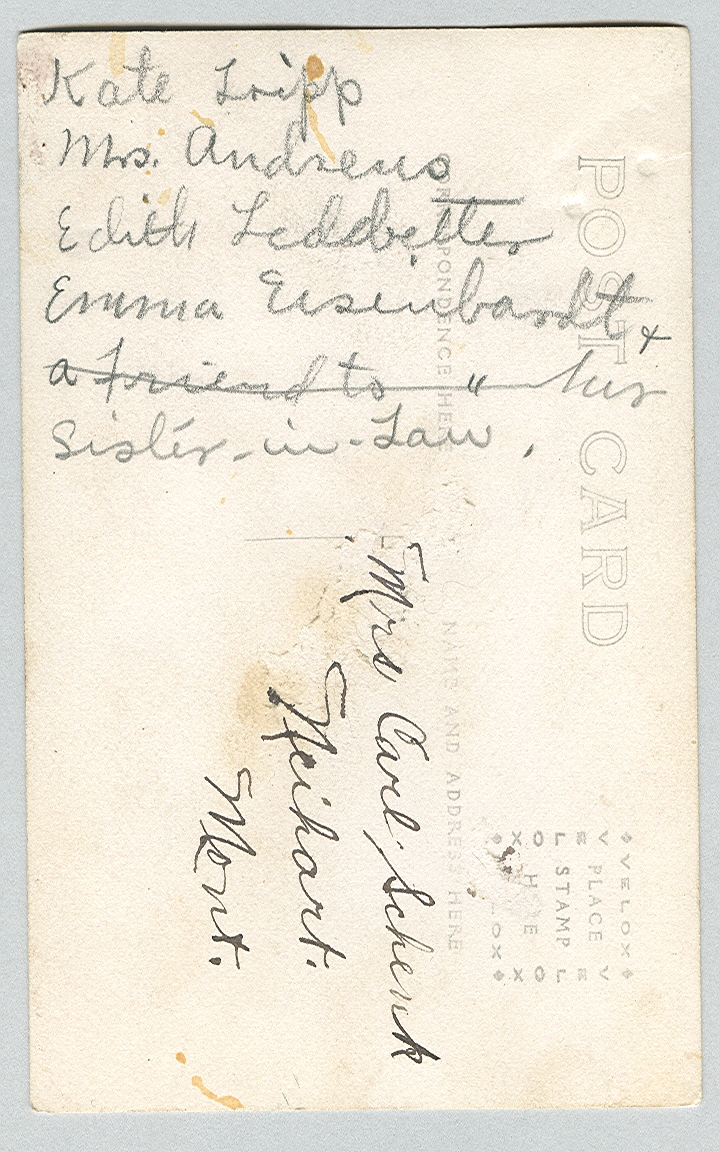 Kate Tripp
Mrs. Andrews
Edith Ledbetter
Emma Eisenbardt &
a friend to " her
Sister-in-Law.
POST CARD
CORRESPONDENCE HERE
NAME AND ADDRESS HERE
VELOX
PLACE
STAMP
HERE
VELOX
Mrs Carl Schenk
Neihart.
Mont.